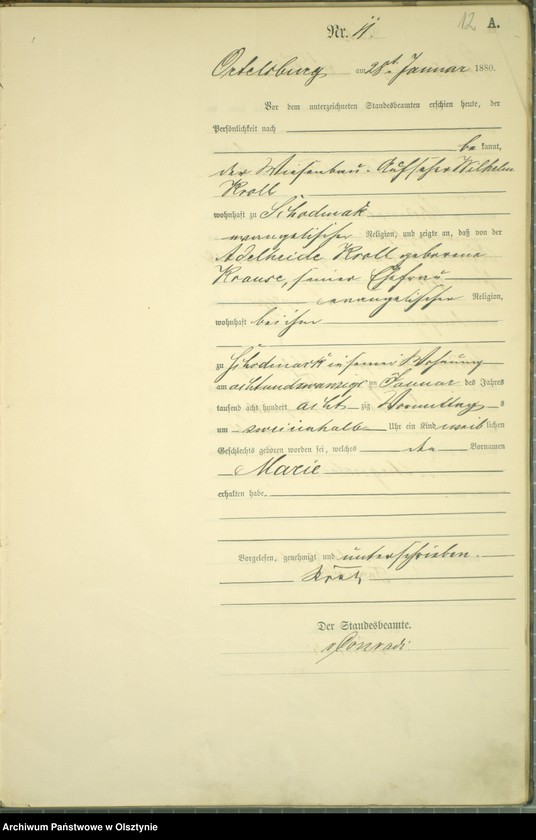 12 A.
Nr. 11.
Ortelsburg am 28t Januar 1880.
Vor dem unterzeichneten Standesbeamten erschien heute, der
Persönlichkeit nach
be kannt,
der Wiesenbau-Aufseher Wilhelm
Kroll
wohnhaft zu Schodmak
evangelischer Religion, und zeigte an, daß von der
Adelheide Kroll geborene
Krause, seiner Ehefrau
evangelischer Religion,
wohnhaft bei ihm
zu Schodmack in seiner Wohnung
am achtundzwanzigs ten Januar des Jahres
tausend acht hundert acht zig Vormittag s
um zweieinhalb Uhr ein Kind weib lichen
Geschlechts geboren worden sei, welches den Vornamen
Marie
erhalten habe.
Vorgelesen, genehmigt und unterschrieben.
Der Standesbeamte.
Conradi
Archiwum Państwowe w Olsztynie